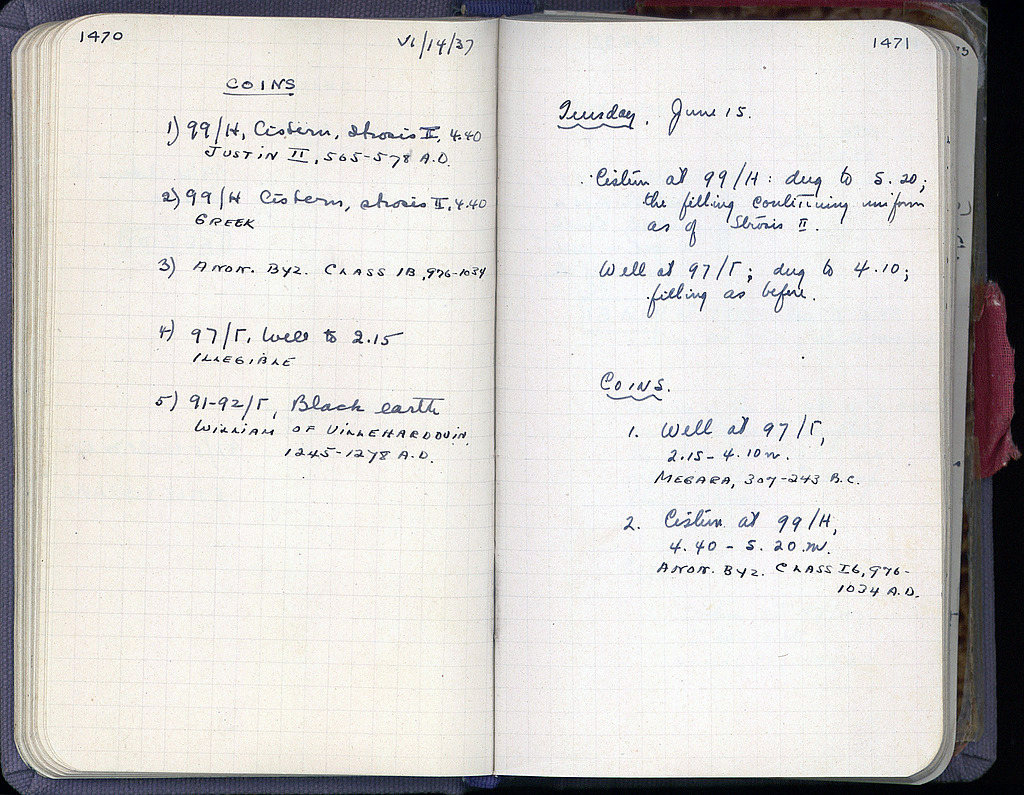 1470
VI/14/37
COINS
1) 99/H, Cistern, Strosis II, 4.40
JUSTIN II, 565-578 A.D.
2) 99/H Cistern, strosis II, 4.40
GREEK
3) ANON. BYZ. CLASS IB, 976-1034
4) 97/Γ, Well to 2.15
ILLEGIBLE
5) 91-92/Γ, Black earth
WILLIAM OF VILLEHARDOUIN,
1245-1278 A.D.
1471
Tuesday, June 15.
Cistern at 99/H: dug to 5.20;
the filling continuing uniform
as of Strosis II.
Well at 97/Γ; dug to 4.10;
filling as before.
COINS.
1. Well at 97/Γ,
2.15-4.10 m.
MEGARA, 307-243 B.C.
2. Cistern at 99/H,
4.40 - 5.20 m.
ANON. BYZ. CLASS I6, 976-
1034 A.D.